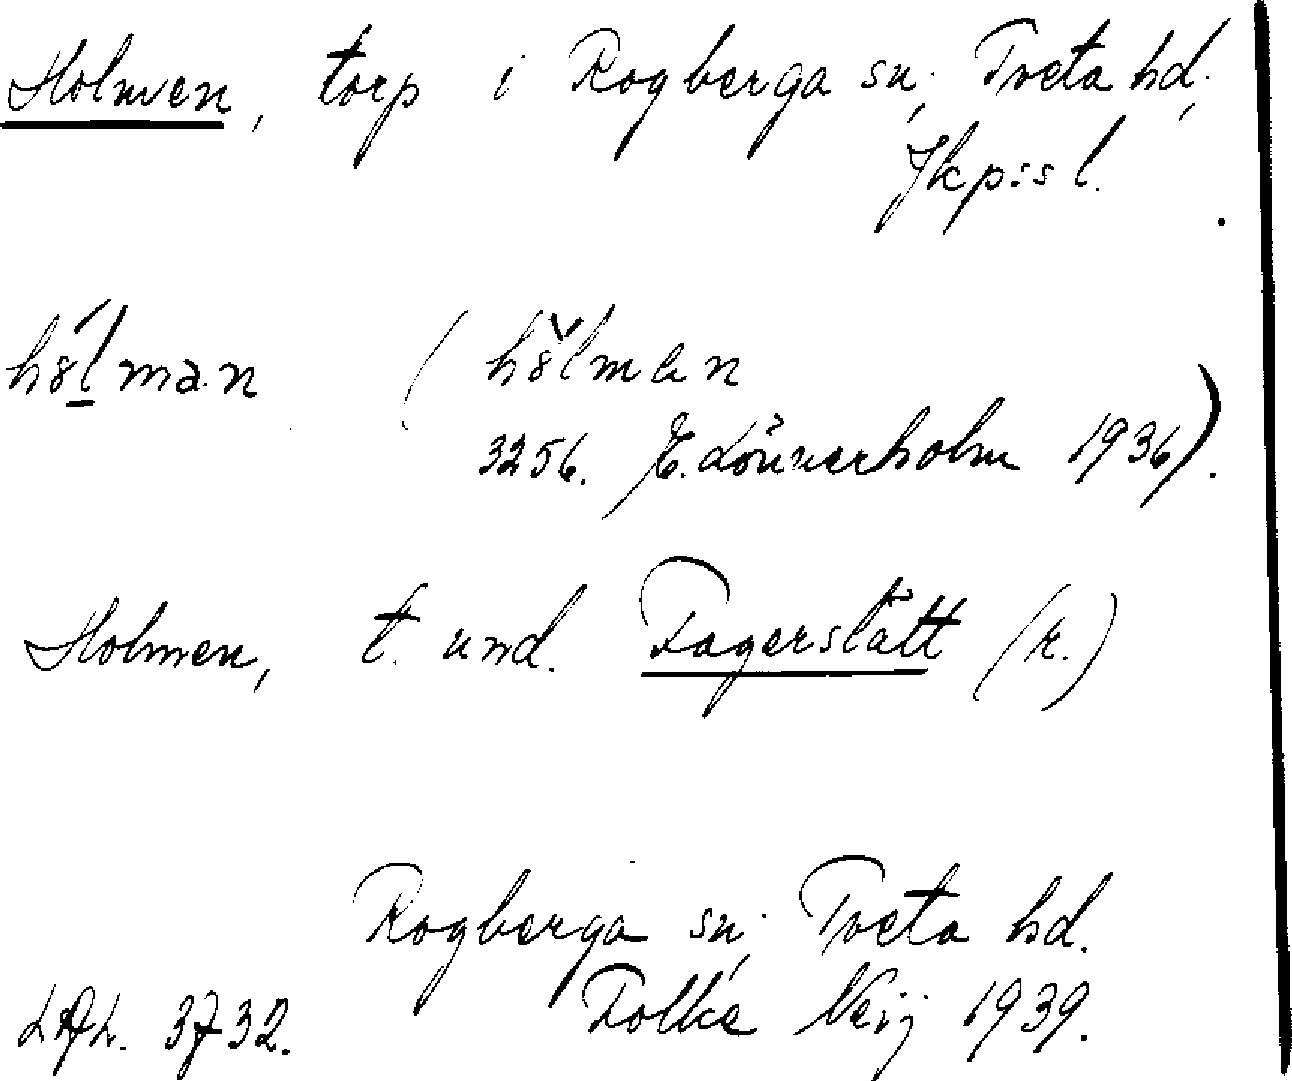 Holmen, torp i Rogberga sn; Tveta hd;
Jkps: s l.
hól man ( hölman
3256. E. Lönnerholm 1936).
Holmen, t. und. Fagerslätt (r.)
Rogberga sn; Tveta hd.
3732. Folke Neij 1939.